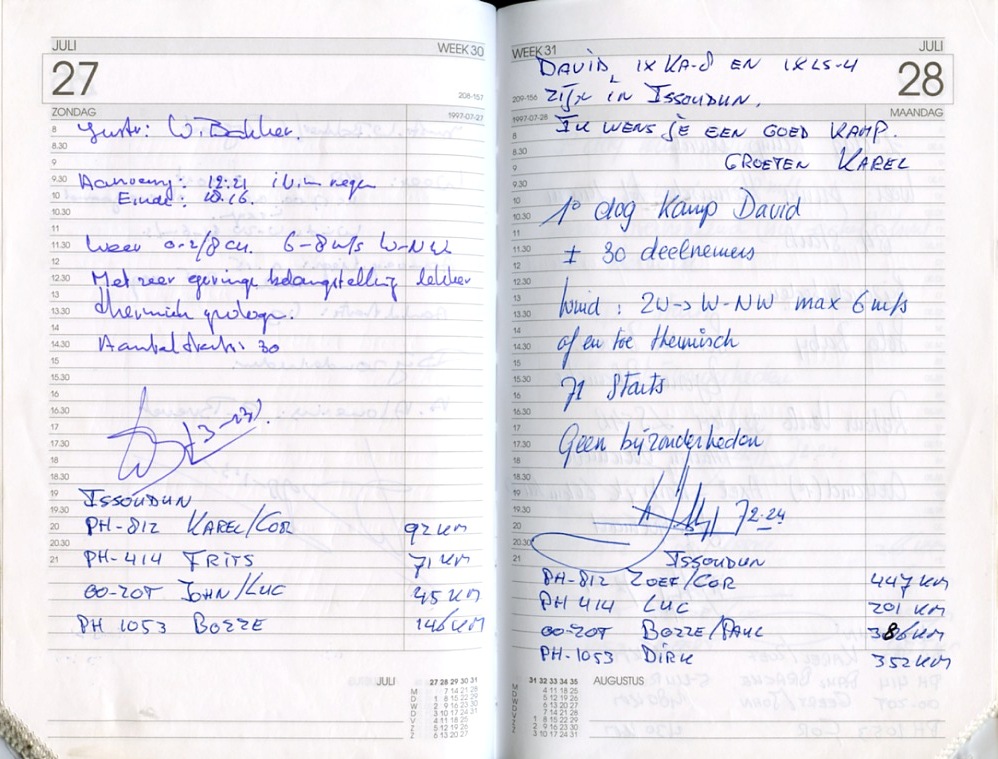 JULI WEEK 30
27
208-157
ZONDAG 1997-07-27
8 Instr: W. Bakker.
8.30
9
9.30 Aanvang: 12.21 i.v.m regen
10 Einde: 18.16.
10.30
11
11.30 Weer 0-2/8 cu. 6-8 m/s W-NW
12
12.30 Met zeer geringe belangstelling lekker
13
13.30 thermisch gevlogen.
14
14.30 Aantal starts: 30
15
15.30
16
16.30
17
17.30
18
18.30
19 ISSOUDUN
19.30
20 PH-812 KAREL/COR 92 KM
20.30
21 PH-414 FRITS 71 KM
OO-ZOT JOHN/LUC 45 KM
PH 1053 BOZZE 146 KM
JULI 27 28 29 30 31
M 7 14 21 28
D 1 8 15 22 29
W 2 9 16 23 30
D 3 10 17 24 31
V 4 11 18 25
Z 5 12 19 26
Z 6 13 20 27
WEEK 31 JULI
28
DAVID, IX KA-8 EN IX LS-4
209-156 ZIJN IN ISSOUDUN.
1997-07-28 MAANDAG
8 IK WENS JE EEN GOED KAMP.
8.30
9 GROETEN KAREL
9.30
10
10.30 1e dag Kamp David
11
11.30 ± 30 deelnemers
12
12.30
13
13.30 Wind: ZW→W-NW max 6 m/s
14
14.30 af en toe thermisch
15
15.30 71 Starts
16
16.30
17
17.30 Geen bijzonderheden
18
18.30
19
19.30
20 72-24
20.30
21 ISSOUDUN
PH-812 ZOEF/COR 447 KM
PH 414 LUC 201 KM
OO-ZOT BOZZE/PAUL 386 KM
PH-1053 DIRK 352 KM
31 32 33 34 35 AUGUSTUS
M 4 11 18 25
D 5 12 19 26
W 6 13 20 27
D 7 14 21 28
V 1 8 15 22 29
Z 2 9 16 23 30
Z 3 10 17 24 31